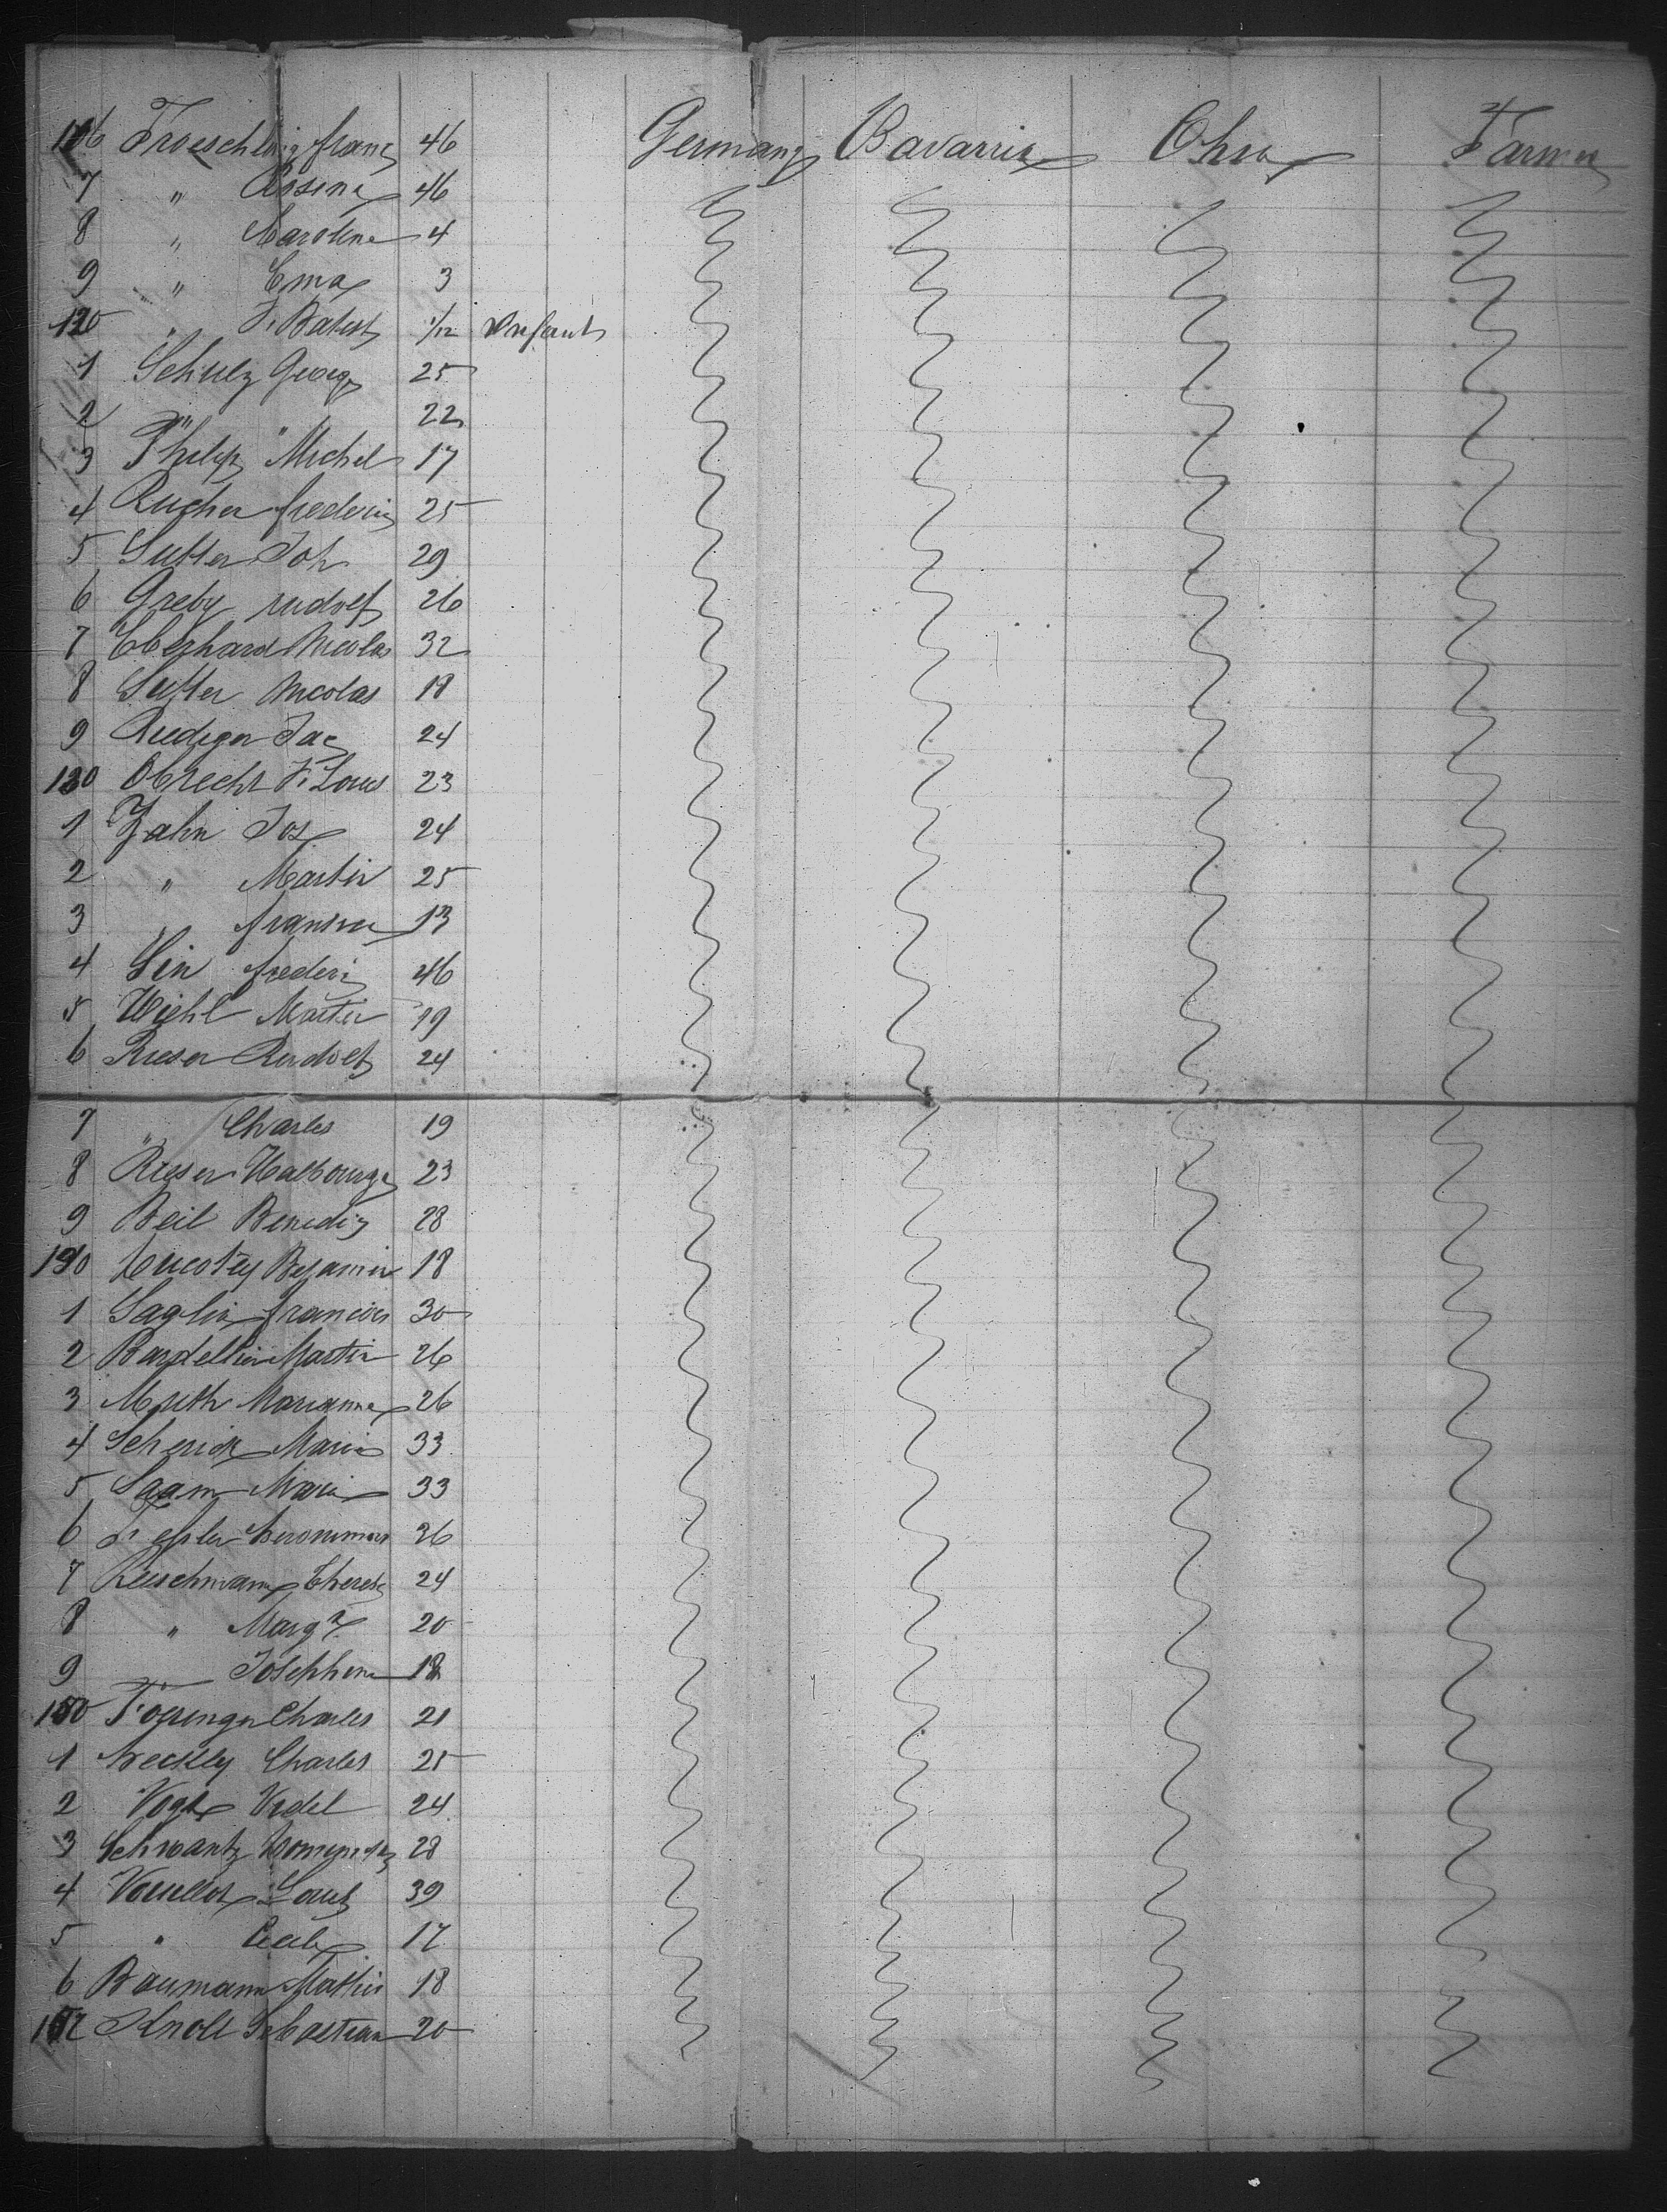 116 Froeschling franz 46 Germany Bavarria Ohio Farmer
7 " Rosina 46
8 " Carolina 4
9 " Ema 3
120 " J. Babtst 1/12 Infant
1 Schulz Georg 25
2 " " 22
3 Philip Michel 17
4 Rucher frederic 25
5 Sutter Joh 29
6 Greby rudolf 26
7 Eberhard Nicolas 32
8 Sutter Nicolas 18
9 Ruediger Jac 24
130 Obrecht F. Louis 23
1 Zahn Jos 24
2 " Martin 25
3 " 13
4 Sin frederic 46
5 Wiehl Martin 19
6 Rieser Rudolf 24
7 " Charles 19
8 Rieser Walbourga 23
9 Beil Benedic 28
190 Benjamin 18
1 Saglio francois 30
2 Martin 26
3 Muth Marianna 26
4 Marie 33
5 Saam Marie 33
6 26
7 Reischmann Therese 24
8 " Margr 20
9 " Josephine 18
150 Foeringer Charles 21
1 Charles 25
2 Vogt Vidal 24
3 Schwantz 28
4 Louis 39
5 " Cecile 17
6 Baumann Mathis 18
Knoll Sebastian 20